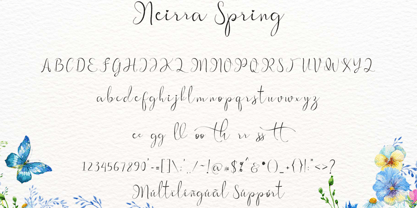 Neirra Spring
ABCDEFGHIJKLMNOPQRSTUVWXYZ
abcdefghijklmnopqrstuvwxyz
ee gg ll oo th rr ss tt
Multilingual Support